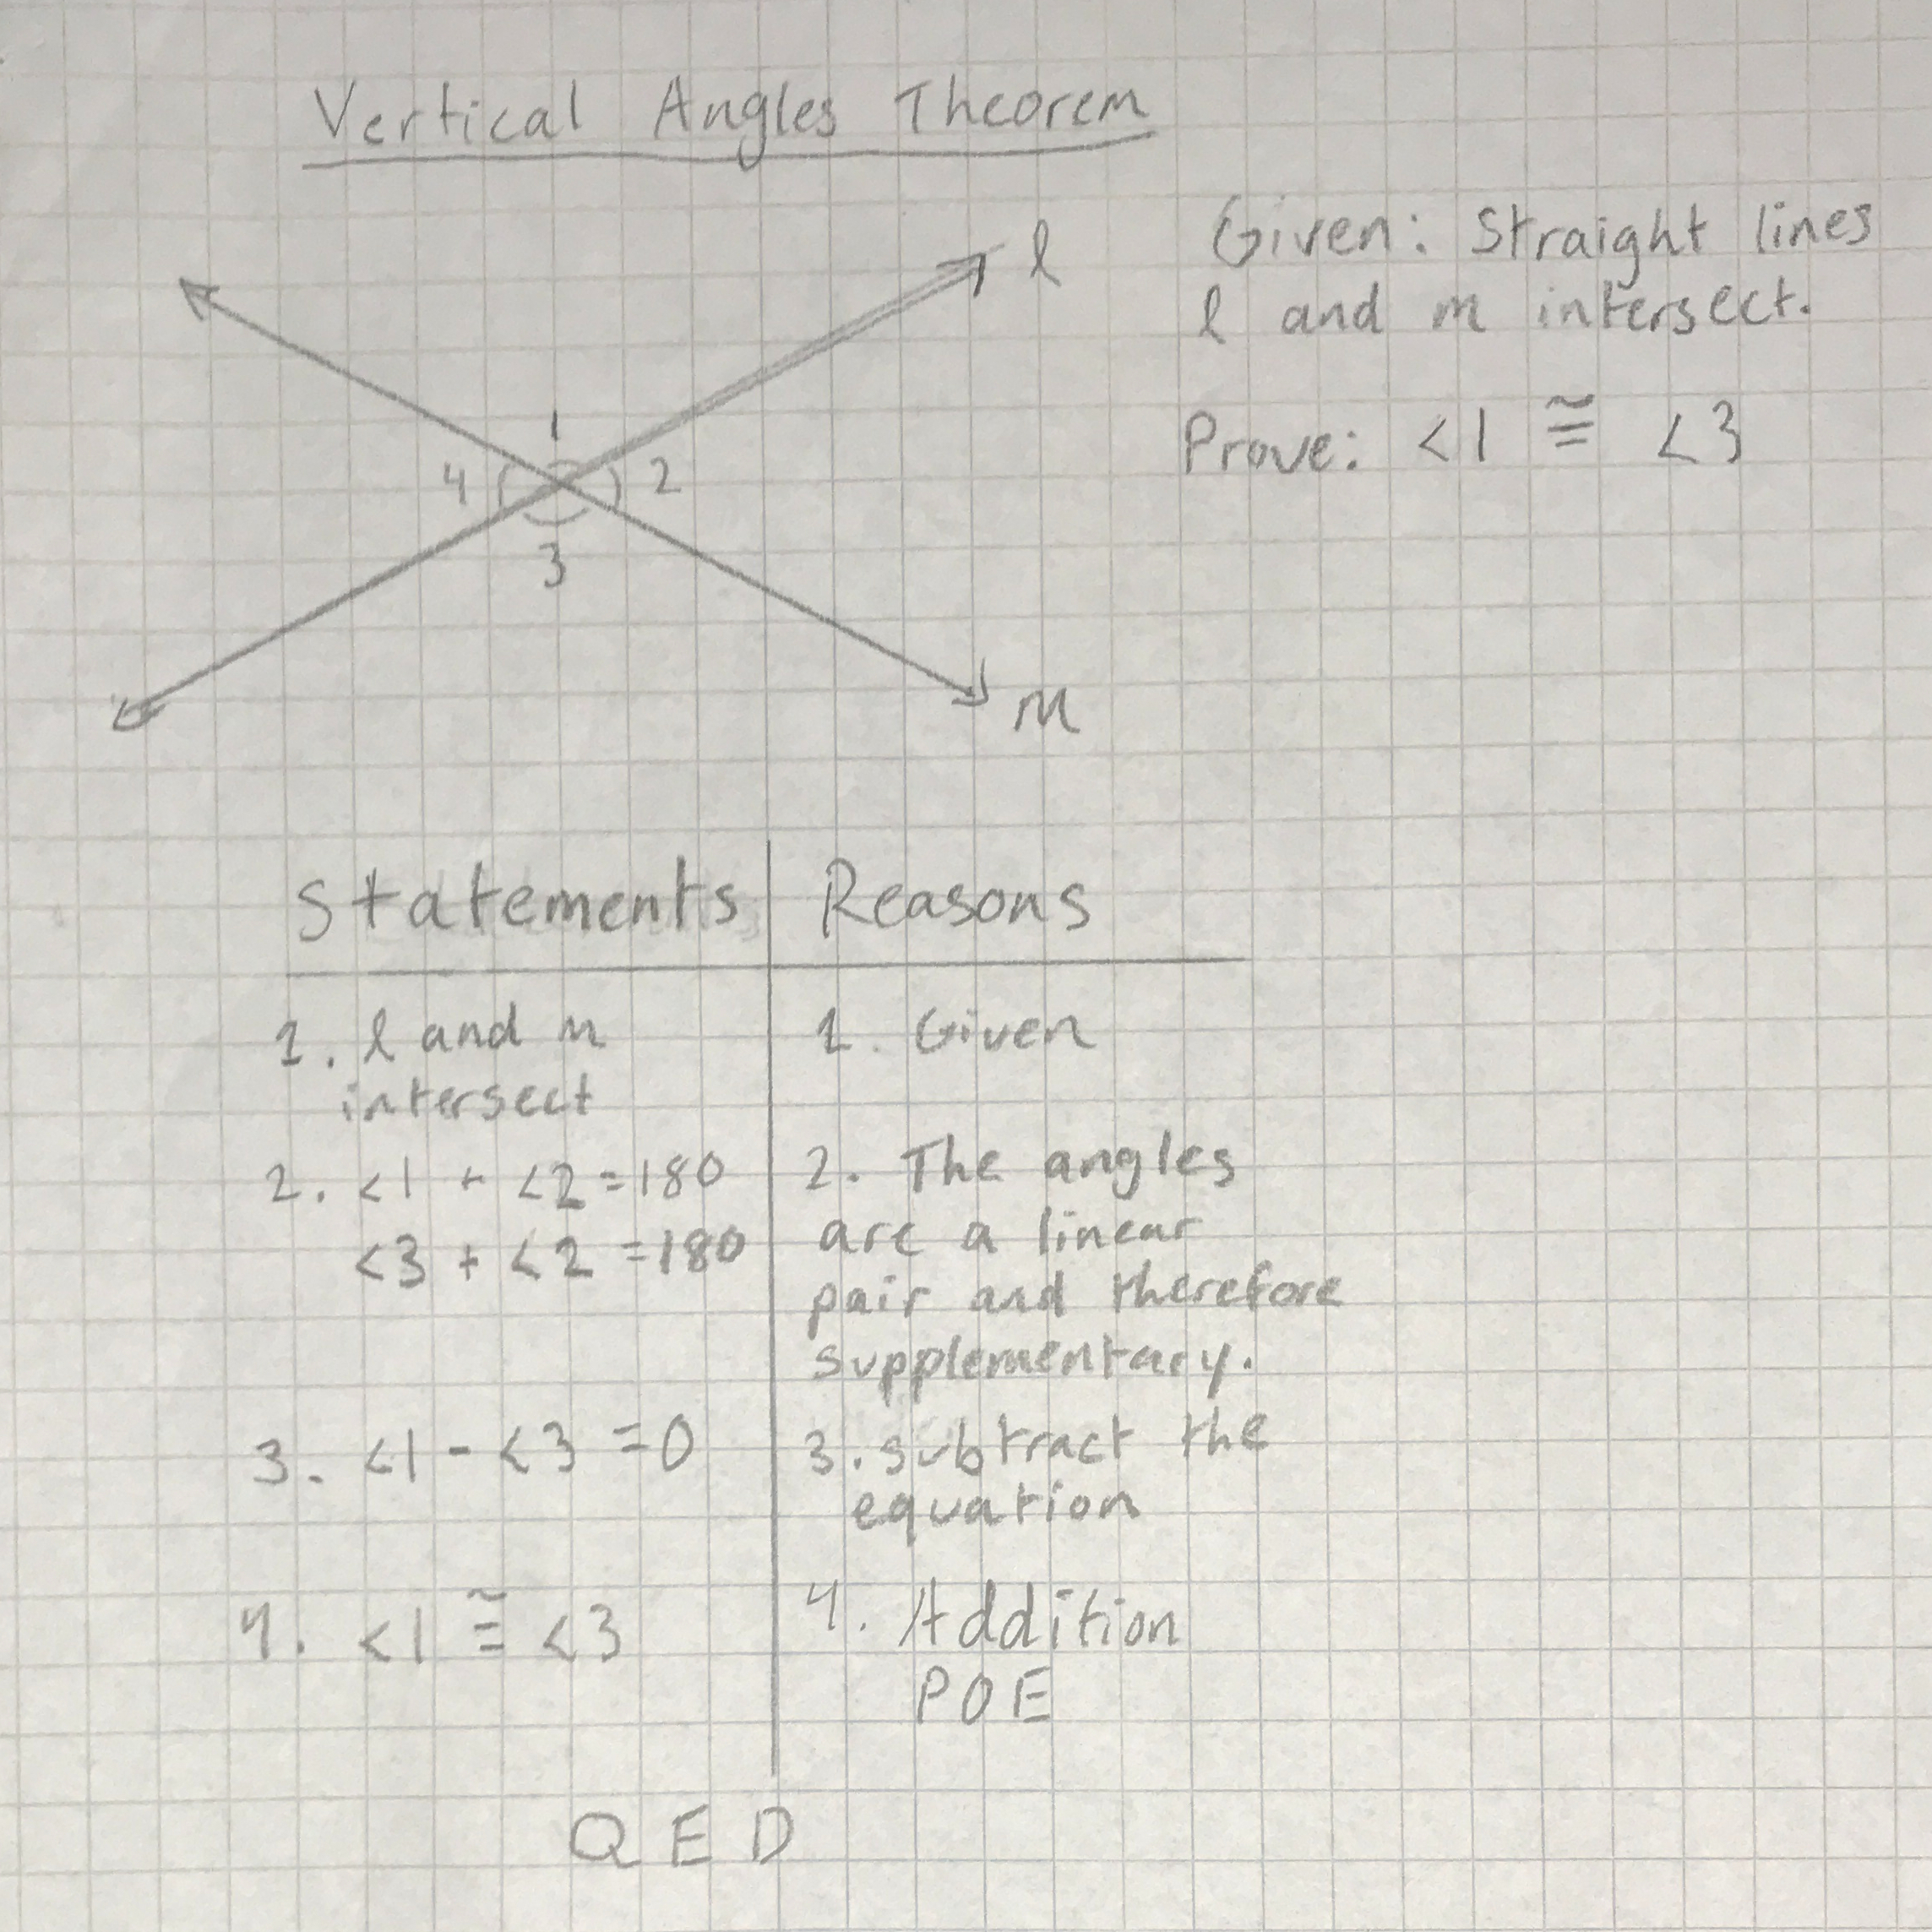 Vertical Angles Theorem
l
Given: Straight lines
l and m intersect.
Prove: <1 ≅ <3
1
4 2
3
m
Statements Reasons
1. l and m
intersect
1. Given
2. <1 + <2 = 180
<3 + <2 = 180
2. The angles
are a linear
pair and therefore
supplementary.
3. <1 - <3 = 0
3. subtract the
equation
4. <1 ≅ <3
4. Addition
POE
QED